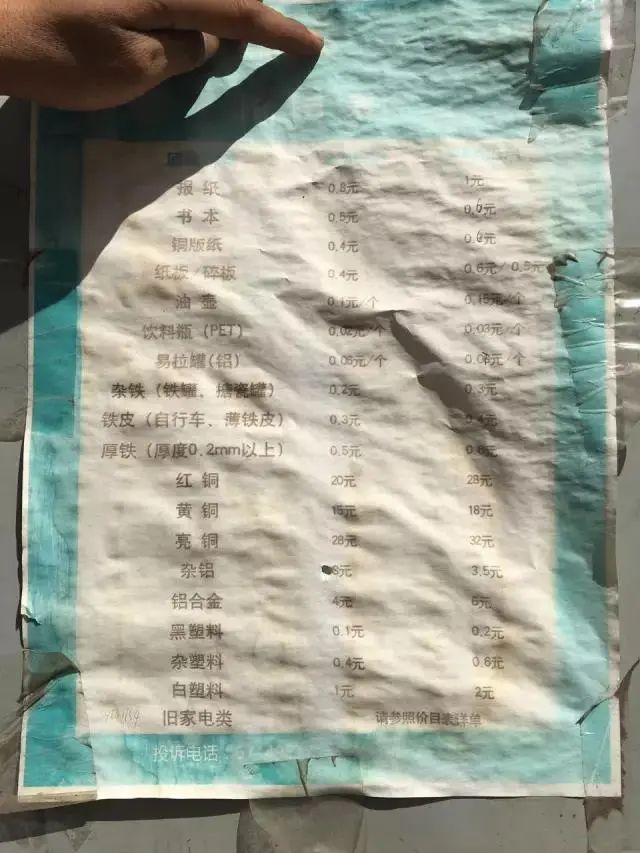 报纸 0.8元 1元
书本 0.5元 0.6元
铜版纸 0.4元 0.6元
纸板/碎板 0.4元 0.6元/0.5元
油壶 0.1元/个 0.15元/个
饮料瓶(PET) 0.02元/个 0.03元/个
易拉罐(铝) 0.06元/个
杂铁(铁罐、搪瓷罐) 0.2元 0.3元
铁皮(自行车、薄铁皮) 0.3元 0.4元
厚铁(厚度0.2mm以上) 0.5元 0.6元
红铜 20元 28元
黄铜 15元 18元
亮铜 28元 32元
杂铝 3.5元
铝合金 4元 6元
黑塑料 0.1元 0.2元
杂塑料 0.4元 0.6元
白塑料 1元 2元
旧家电类 请参照价目表详单
投诉电话: